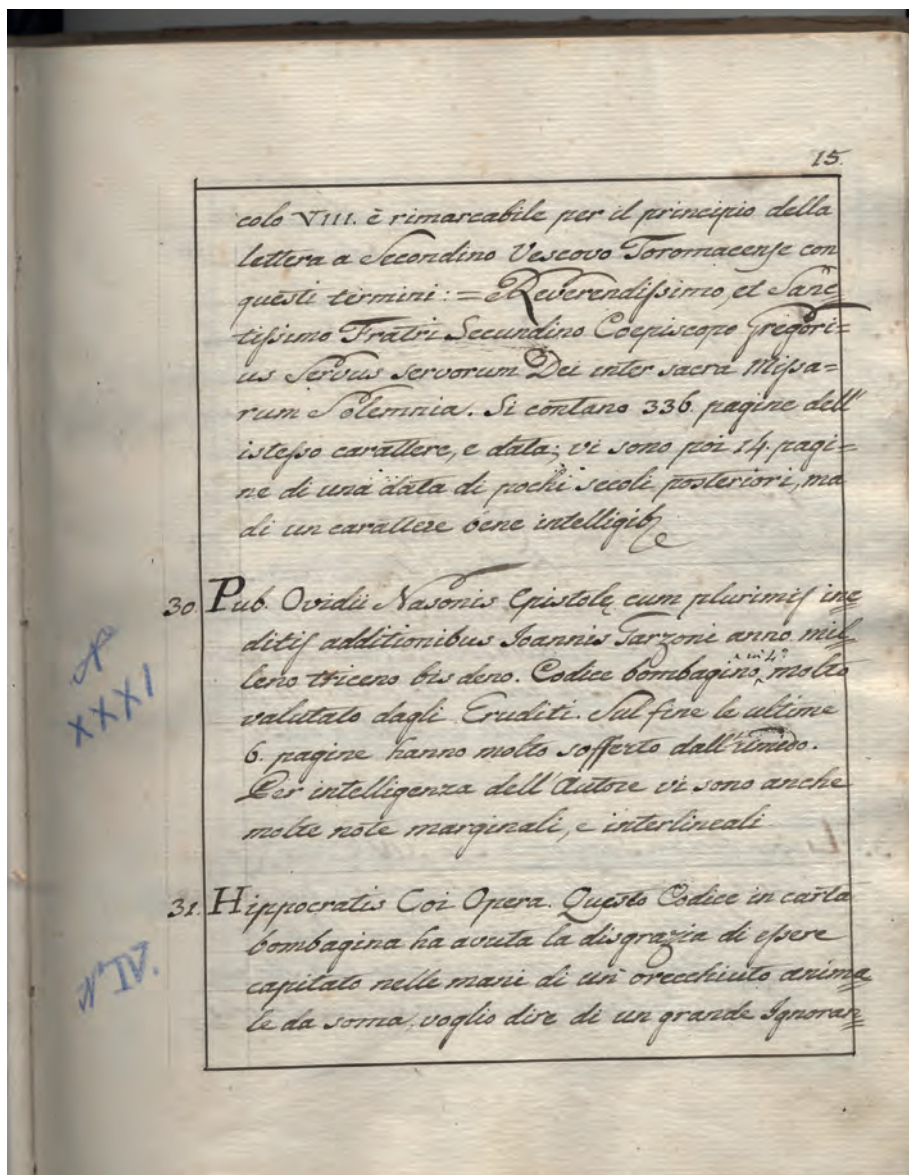 15.
colo VIII. è rimarcabile per il principio della
lettera a Secondino Vescovo Toromacense con
questi termini: = Reverendissimo, et Sanc=
tissimo Fratri Secundino Coepiscopo Gregori=
us Servus Servorum Dei inter sacra Missa=
rum Solemnia. Si contano 336. pagine dell'
istesso carattere, e data; vi sono poi 14. pagi=
ne di una data di pochi secoli posteriori, ma
di un carattere bene intelligibe
30. Pub. Ovidii Nasonis Epistolę cum plurimis ine=
ditis additionibus Joannis Tarzoni anno mil=
leno triceno bis deno. Codice bombagino, in 4.° molto
valutato dagli Eruditi. Sul fine le ultime
N° XXXI
6. pagine hanno molto sofferto dall'umido.
Per intelligenza dell'Autore vi sono anche
molte note marginali, e interlineali
31. Hippocratis Coi Opera. Questo Codice in carta
bombagina ha avuta la disgrazia di essere
N° IV.
capitato nelle mani di un orecchiuto anima=
le da soma, voglio dire di un grande Ignoran=